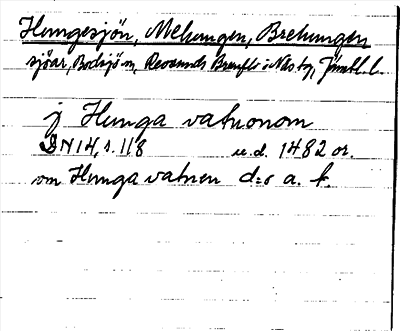 Hungesjön, Mehungen, Brehungen
sjöar, Bodsjö sn, Revsunds Brunflo o Näs tg, Jämtl. l.
j Hunga vatnonom
DN 14, s. 118 u.d. 1482 or.
om Hunga vatnen d:o a. f.